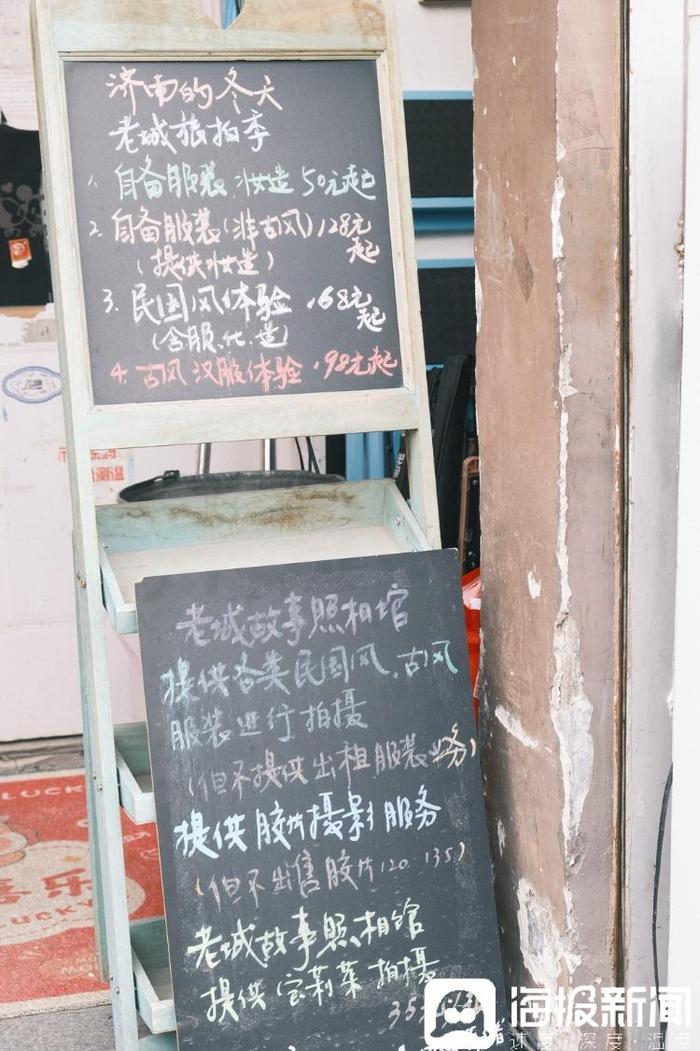 济南的冬天
老城旅拍季
1. 自备服装 妆造 50元起
2. 自备服装(非古风)128元起
(提供妆造)
3. 民国风体验 168元起
(含服.化.造)
4. 古风 汉服体验 198元起
老城故事照相馆
提供各类民国风、古风
服装进行拍摄
(但不提供出租服装业务)
提供胶片摄影服务
(但不出售胶片120 135)
老城故事照相馆
提供宝莉莱拍摄
35
海报新闻
速度·深度·温度
LUCK
喜乐
LUCKY